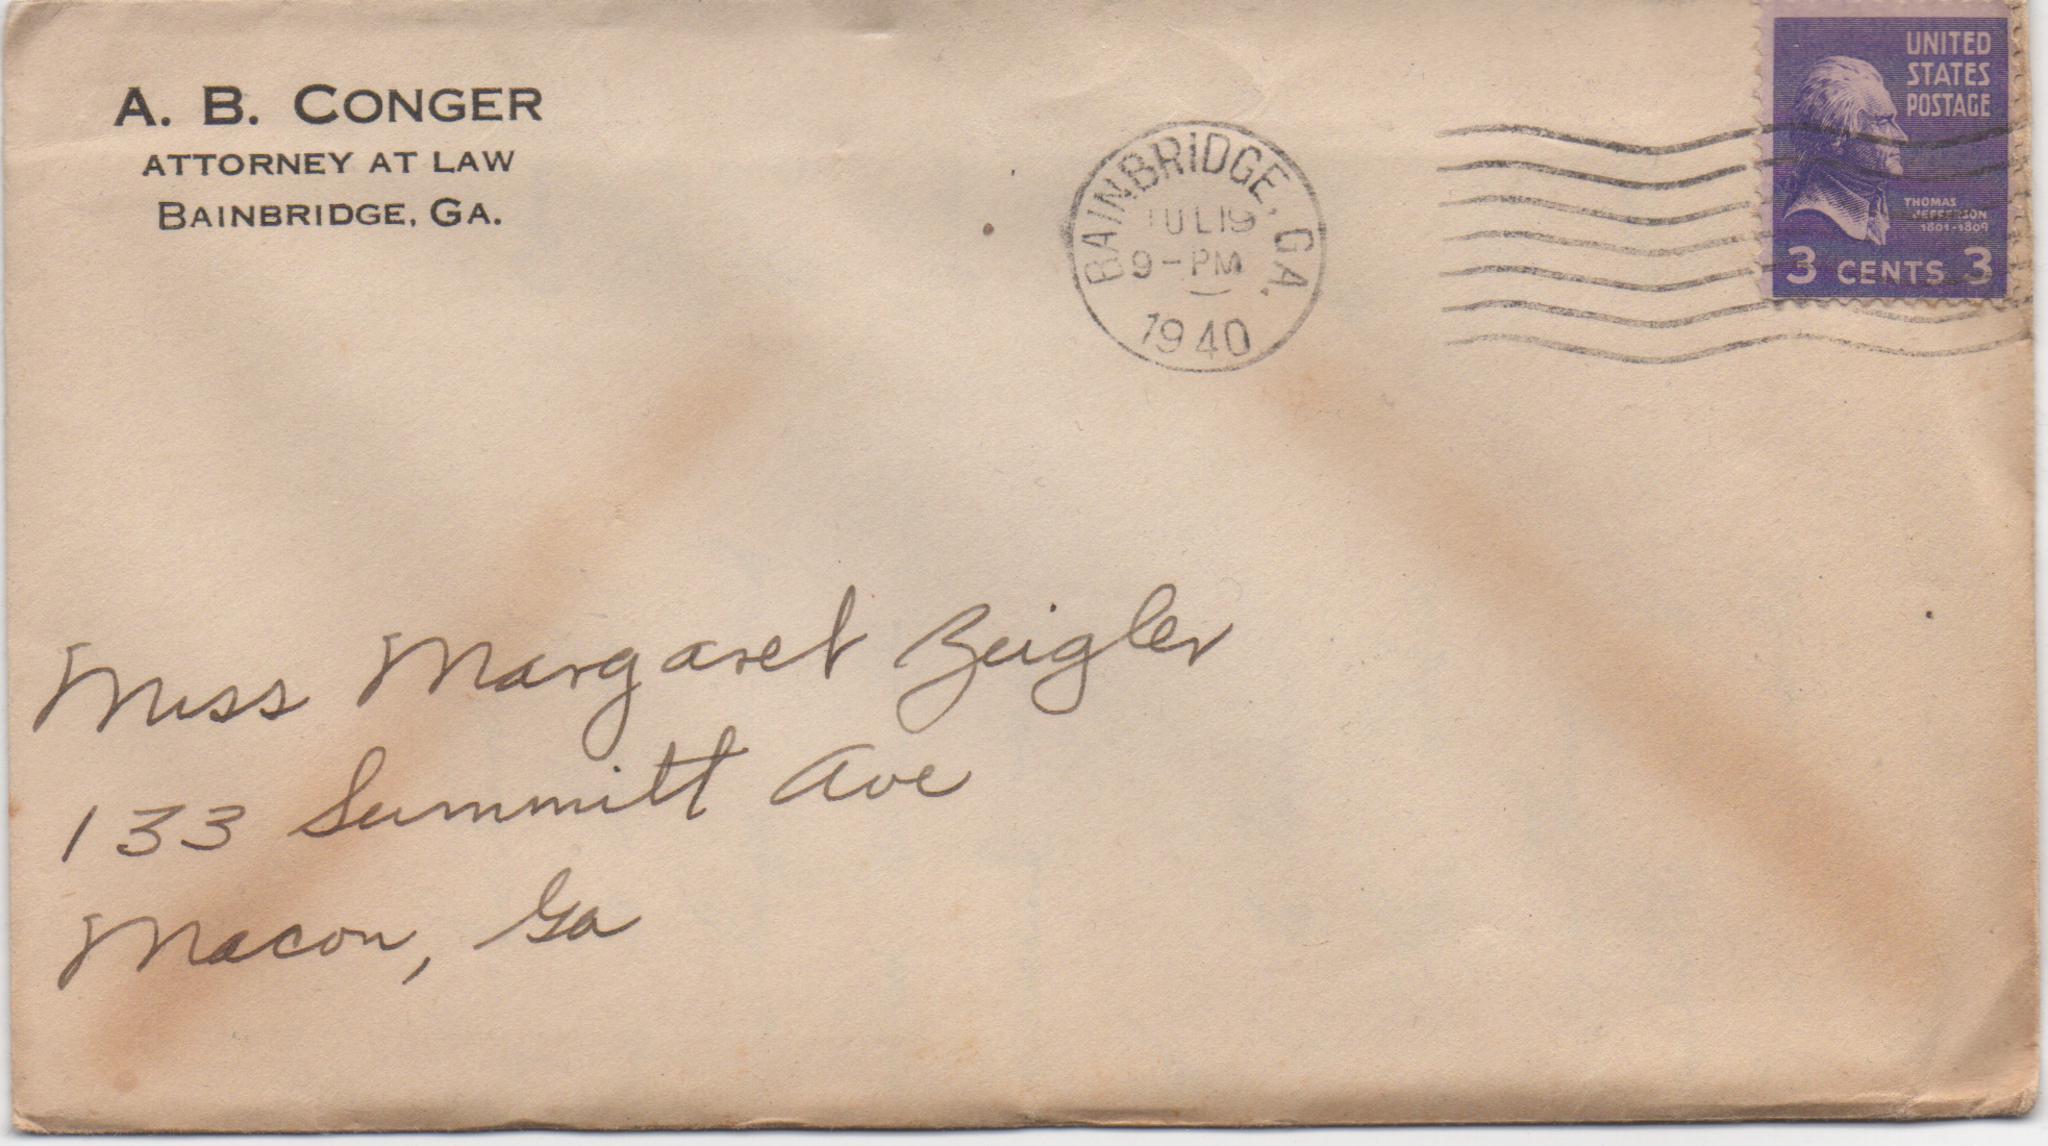 A. B. CONGER
ATTORNEY AT LAW
BAINBRIDGE, GA.
BAINBRIDGE, GA.
JUL 19
9-PM
1940
UNITED
STATES
POSTAGE
THOMAS
JEFFERSON
1801-1809
3 CENTS 3
Miss Margaret Zeigler
133 Summitt Ave
Macon, Ga